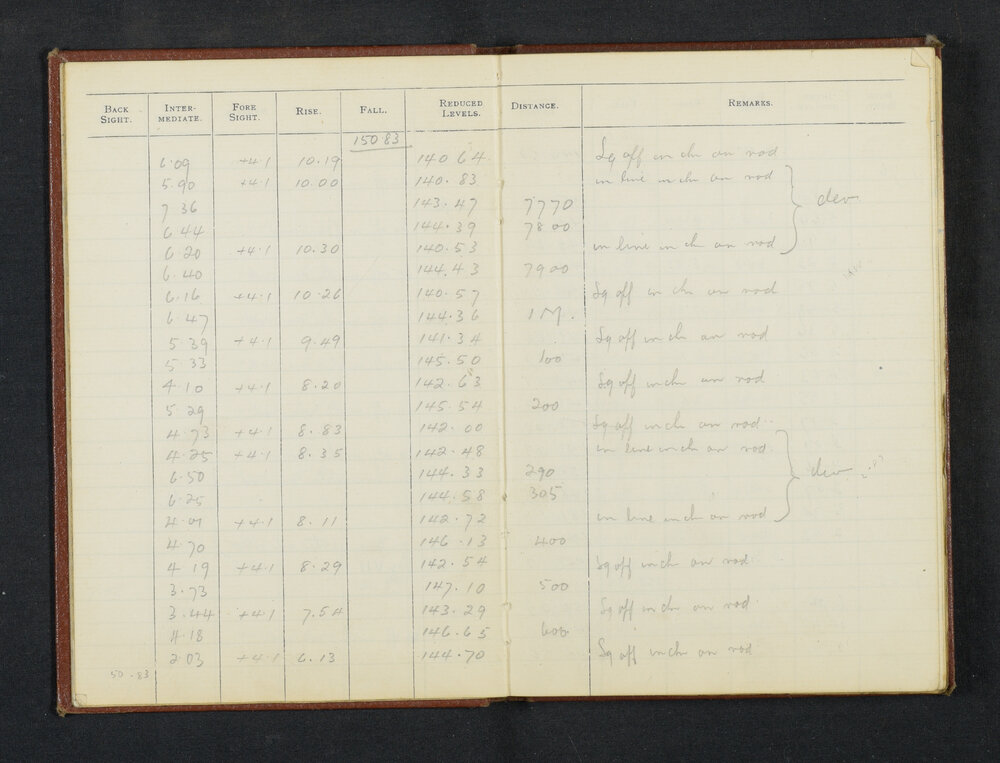 BACK SIGHT. INTER-MEDIATE. FORE SIGHT. RISE. FALL. REDUCED LEVELS. DISTANCE. REMARKS.
150.83
6.09 +4.1 10.19 140.64 Sq off in ch on rod
5.90 +4.1 10.00 140.83 in line in ch on rod
7.36 143.47 7770 dev
6.44 144.39 7800
6.20 +4.1 10.30 140.53 in line in ch on rod
6.40 144.43 7900
6.16 +4.1 10.26 140.57 Sq off in ch on rod
6.47 144.36 1 M.
5.39 +4.1 9.49 141.34 Sq off in ch on rod
5.33 145.50 100
4.10 +4.1 8.20 142.63 Sq off in ch on rod
5.29 145.54 200
4.73 +4.1 8.83 142.00 Sq off in ch on rod
4.25 +4.1 8.35 142.48 in line in ch on rod
6.50 144.33 290 dev
6.25 144.58 305
4.01 +4.1 8.11 142.72 in line in ch on rod
4.70 146.13 400
4.19 +4.1 8.29 142.54 Sq off in ch on rod
3.73 147.10 500
3.44 +4.1 7.54 143.29 Sq off in ch on rod
4.18 146.65 600
2.03 +4.1 6.13 144.70 Sq off in ch on rod
50.83